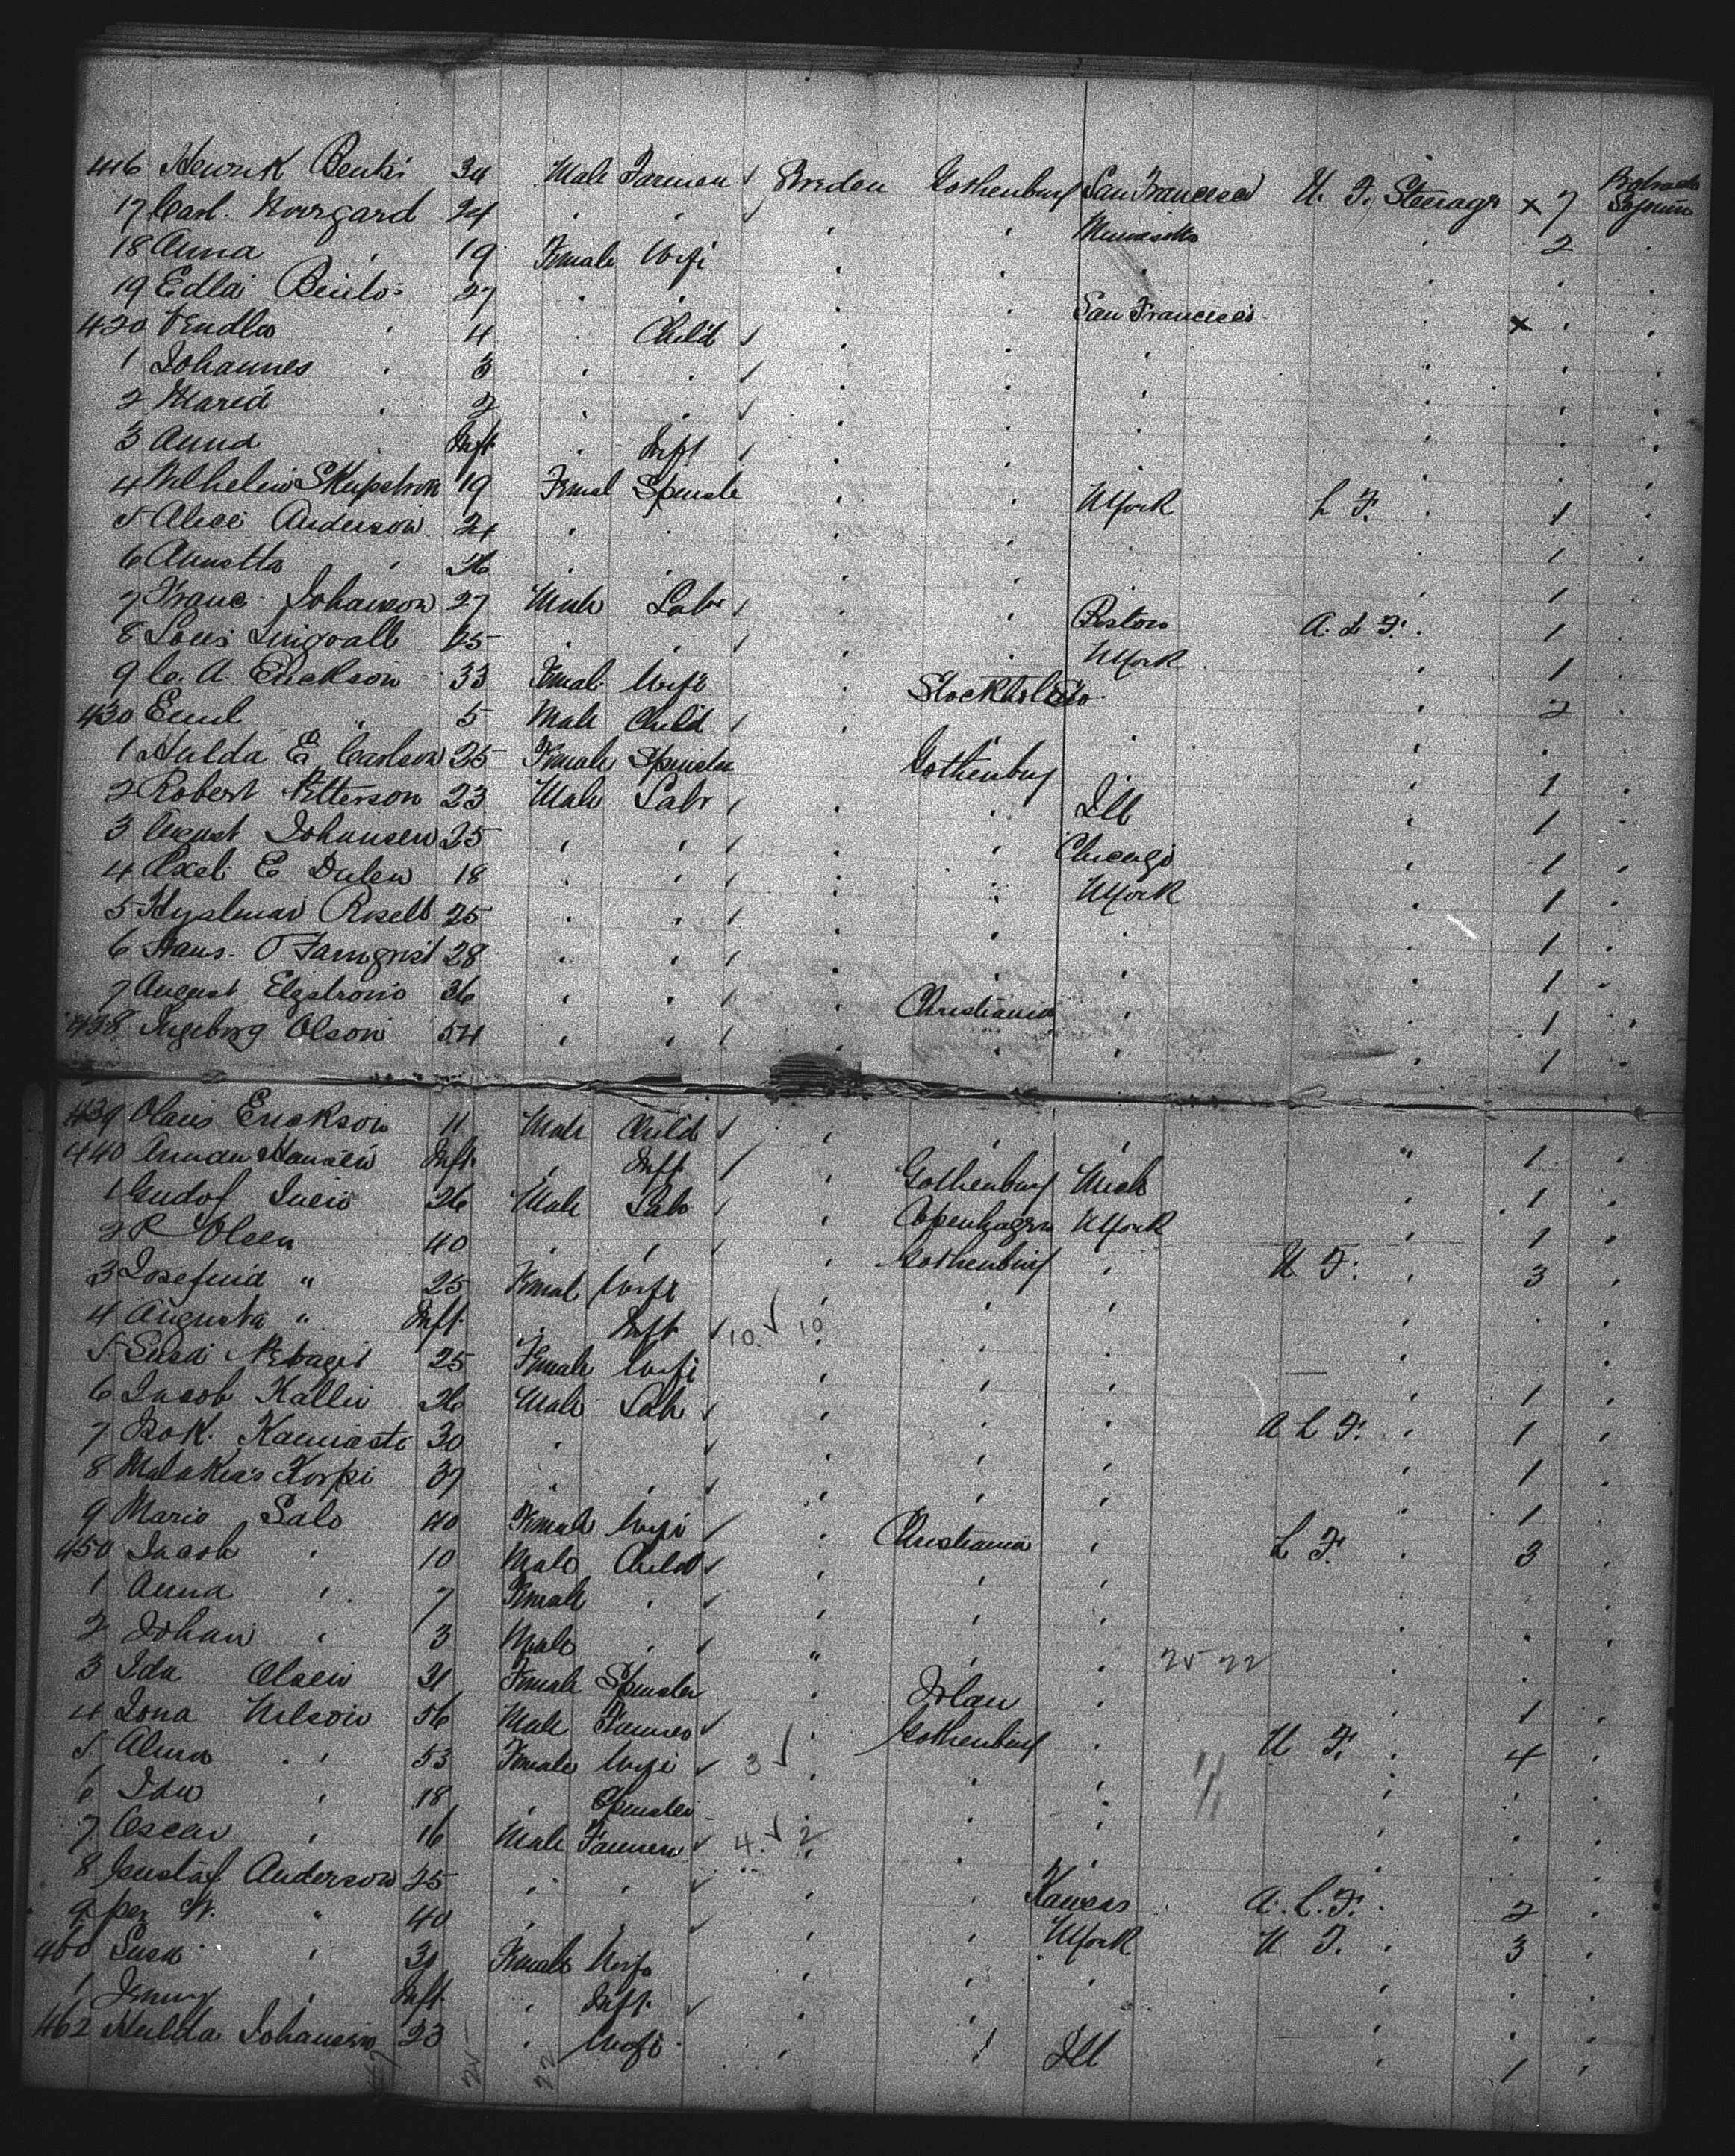 416 Henrik 34 Male Farmer Sweden Gothenburg San Francisco U. F. Steerage x 7
17 Carl Norrgard 24 2
18 Anna 19 Female Wife
19 Edla 27 San Francisco x
420 4 Child
1 Johannes 3
2 Maria 2
3 Anna Inft Inft
4 19 Femal Spinste NYork L F. 1
5 Alice Anderson 24 1
6 Annetta 26 1
7 Franc Johanson 27 Male Labr Boston A. L F. 1
8 Louis 25 NYork 1
9 C. A. Erickson 33 Femal. Wife Stockholm 2
430 Emil 5 Male Child
1 Hulda E Carlson 25 Female Spinster Gothenburg 1
2 Robert Petterson 23 Male Labr Ill 1
3 August Johansen 25 Chicago 1
4 Axel E 18 NYork 1
5 Hjalmar Rosell 25 1
6 Hans. O 28 1
7 August Elgstrom 36 Christiania 1
438 Ingeborg Olson 54 1
439 Olaus Erickson 11 Male Child 1
440 Hansen Inft. Inft Gothenburg Mich 1
1 26 Male Lab Copenhagen NYork 1
2 R Olsen 40 Gothenburg U F. 3
3 Josefina " 25 Femal Wife
4 Augusta " Inft. Inft 10 10
5 25 Female Wife 1
6 Jacob Kallio 26 Male Lab A L F. 1
7 30 1
8 Malakias Korpi 37 1
9 Maria Salo 40 Female Wife Christiania L F. 3
450 Jacob 10 Male Child
1 Anna 7 Female
2 Johan 3 Male " 25 22
3 Ida Olsen 21 Female Spinster 1
4 Nelson 56 Male Farmer Gothenburg U F. 4
5 Alma 53 Female Wife 3
6 Ida 18 Spinster
7 Oscar 16 Male Farmer 4. 2
8 Gustaf Anderson 25 Kansas A. L. F. 2
9 per " 40 NYork U F. 3
460 30 Female Wife
1 Jenny Inft. Inft.
462 Hulda Johansen 23 Wife Ill 1
25 22